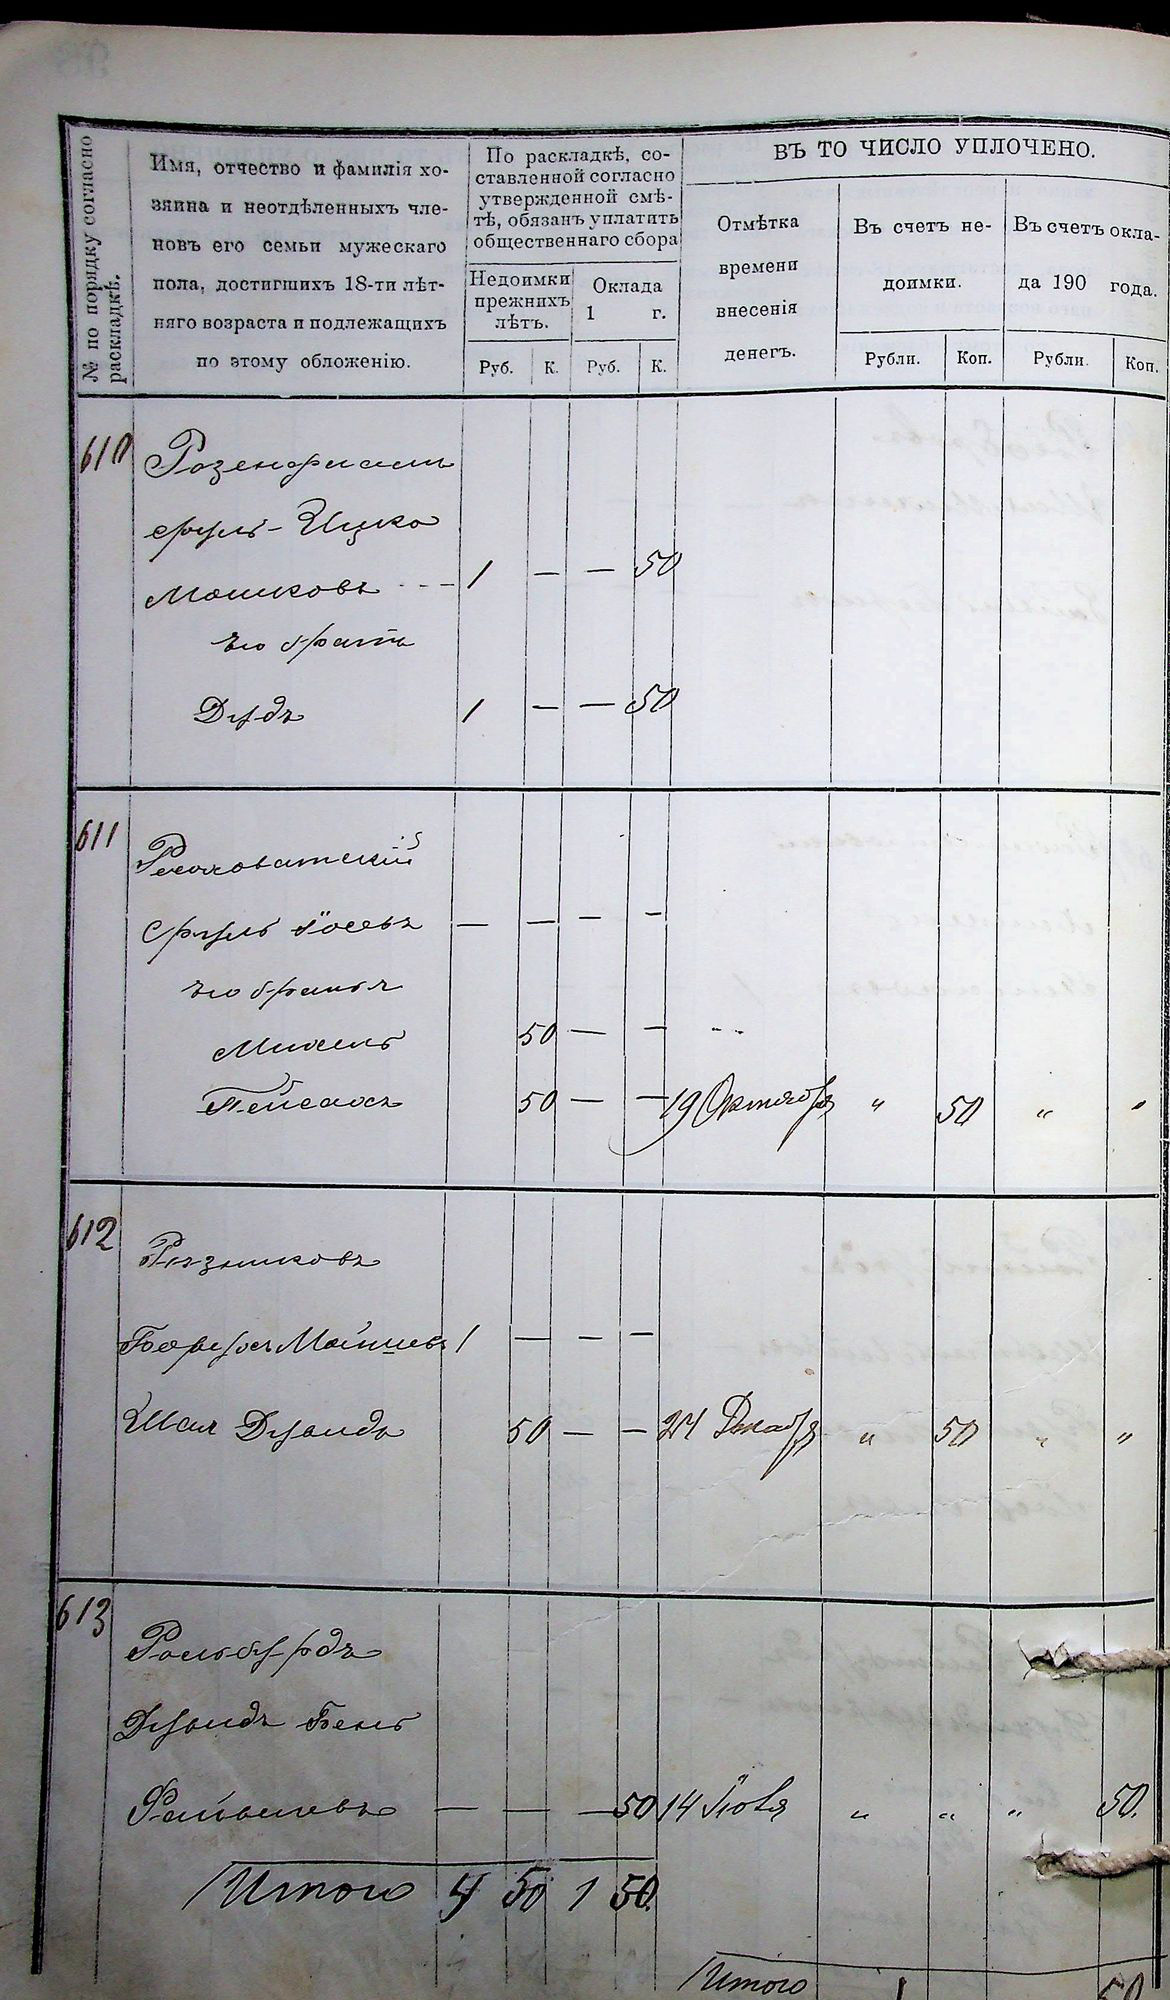 № по порядку согласно
раскладкѣ.
Имя, отчество и фамилія хо-
зяина и неотдѣленныхъ чле-
новъ его семьи мужескаго
пола, достигшихъ 18-ти лѣт-
няго возраста и подлежащихъ
по этому обложенію.
По раскладкѣ, со-
ставленной согласно
утвержденной смѣ-
тѣ, обязанъ уплатить
общественнаго сбора
Недоимки
прежнихъ
лѣтъ.
Оклада
1 г.
Руб. К. Руб. К.
ВЪ ТО ЧИСЛО УПЛОЧЕНО.
Отмѣтка
времени
внесенія
денегъ.
Въ счетъ не-
доимки.
Въ счетъ окла-
да 190 года.
Рубли. Коп. Рубли. Коп.
610
Срулъ-Ицко
Мошковъ - - - 1 — — 50
его братъ
Дудъ 1 — — 50
611
Сруль Іосевъ — — — —
его братья
Михель 50 — — - -
Пейсахъ 50 — — 19 Октября „ 50 „ „
612
Рѣзниковъ
Борухъ 1 — — —
Шая Дувидъ 50 — — 24 Декабря „ 50 „ „
613
Рольбурдъ
Дувидъ Бенъ
Файвелевъ — — — 50 14 Іюля „ „ „ 50.
Итого 4 50 1 50.
Итого 1 50